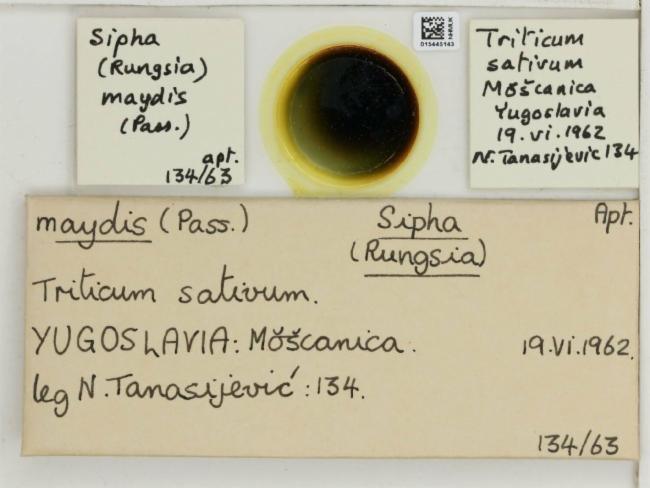 Sipha
(Rungsia)
maydis
(Pass.)
apt.
134/63
NHMUK
015445143
Triticum
sativum
Mŏšcanica
Yugoslavia
19.vi.1962
N.Tanasijevic 134
maydis (Pass.) Sipha Apt.
(Rungsia)
Triticum sativum.
YUGOSLAVIA: Mŏšcanica. 19.VI.1962.
leg N.Tanasijević :134.
134/63